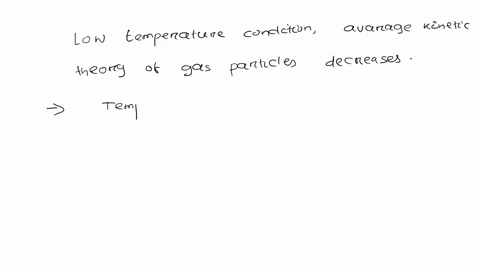 Low temperature condition, avarage kinetic
theory of gas particles decreases.
→ Temp